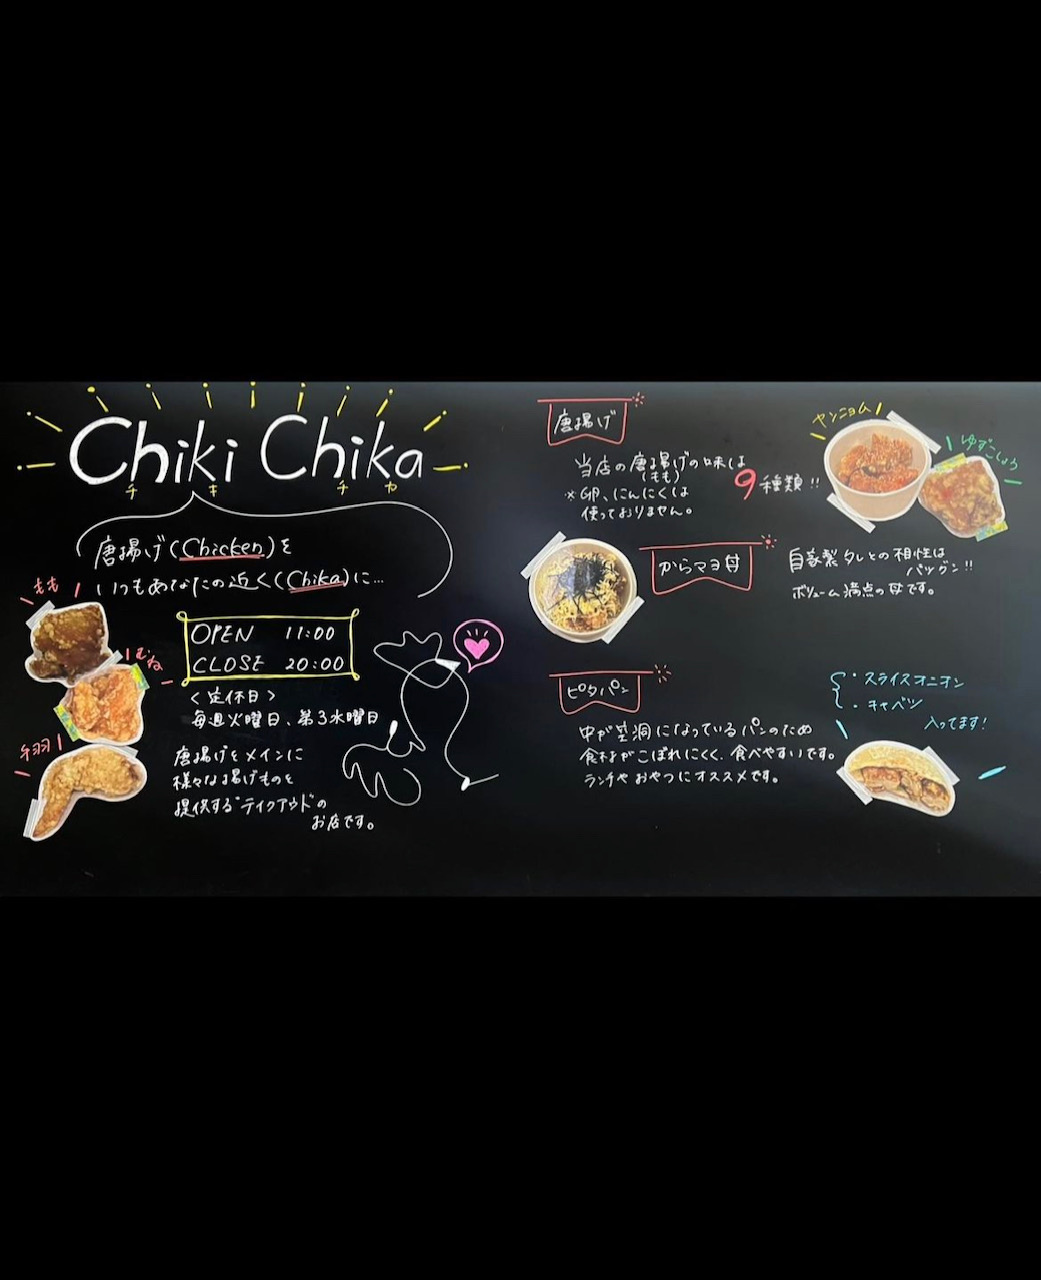 Chiki Chika
チ キ チ カ
唐揚げ(Chicken)を
いつもあなたの近く(Chika)に…
もも
むね
手羽
OPEN 11:00
CLOSE 20:00
<定休日>
毎週火曜日、第3水曜日
唐揚げをメインに
様々な揚げものを
提供する"テイクアウト"の
お店です。
唐揚げ
当店の唐揚げの味は
(もも)
9種類!!
※卵、にんにくは
使っておりません。
ヤンニョム
ゆずこしょう
からマヨ丼
自家製タレとの相性は
バツグン!!
ボリューム満点の丼です。
ピタパン
中が空洞になっているパンのため
食材がこぼれにくく、食べやすいです。
ランチやおやつにオススメです。
・スライスオニオン
・キャベツ
入ってます!